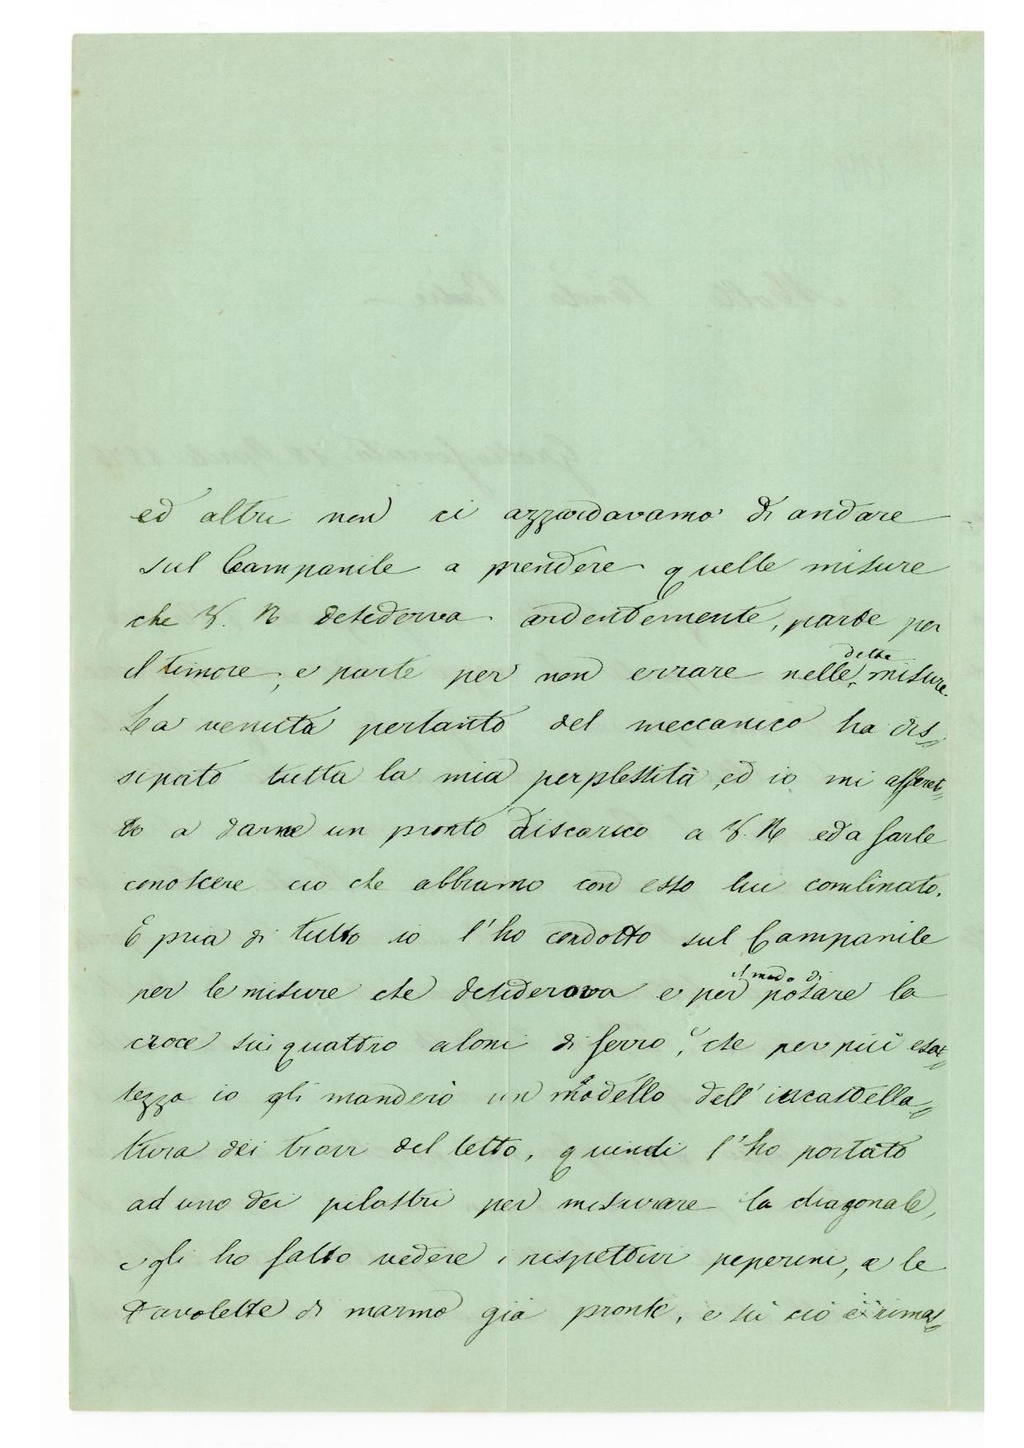 ed altri non ci azzardavamo di andare
sul Campanile a prendere quelle misure
che V. R desiderva ardentemente, parte per
il timore, e parte per non errare nelle dette misure.
La venuta pertanto del meccanico ha dis=
sipato tutta la mia perplessità, ed io mi affret=
to a darne un pronto discarico a V. R ed a farle
conoscere ciò che abbiamo con esso lui combinato.
E pria di tutto io l'ho condotto sul Campanile
per le misure che desiderava e per il modo di posare la
croce sui quattro aloni di ferro, e che per più esat=
tezza io gli manderò un modello dell' incastella=
tura dei travi del letto, quindi l'ho portato
ad uno dei pilastri per misurare la diagonale,
e gli ho fatto vedere i rispettivi peperini, e le
tavolette di marmo già pronte, e su ciò è rimas=